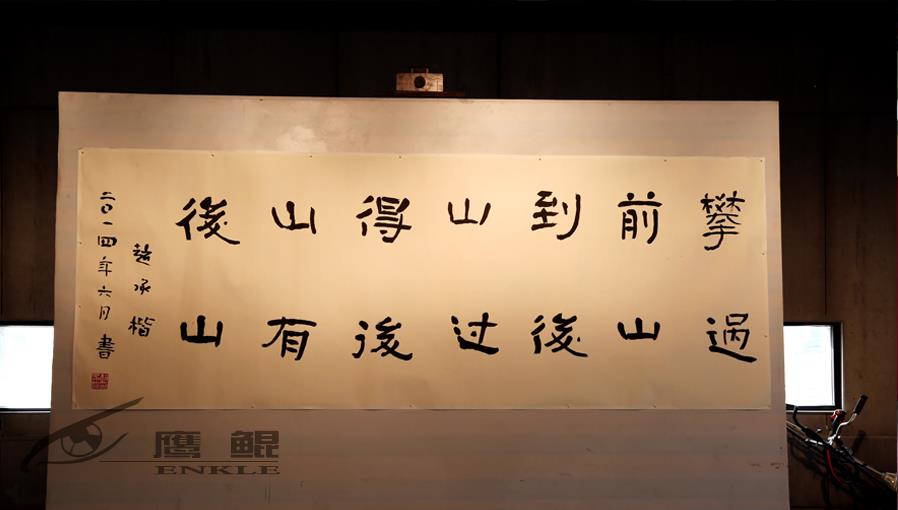 攀過
前山
到後
山过
得後
山有
後山
趙承楷
二〇一四年六月書
鹰鲲
ENKLE